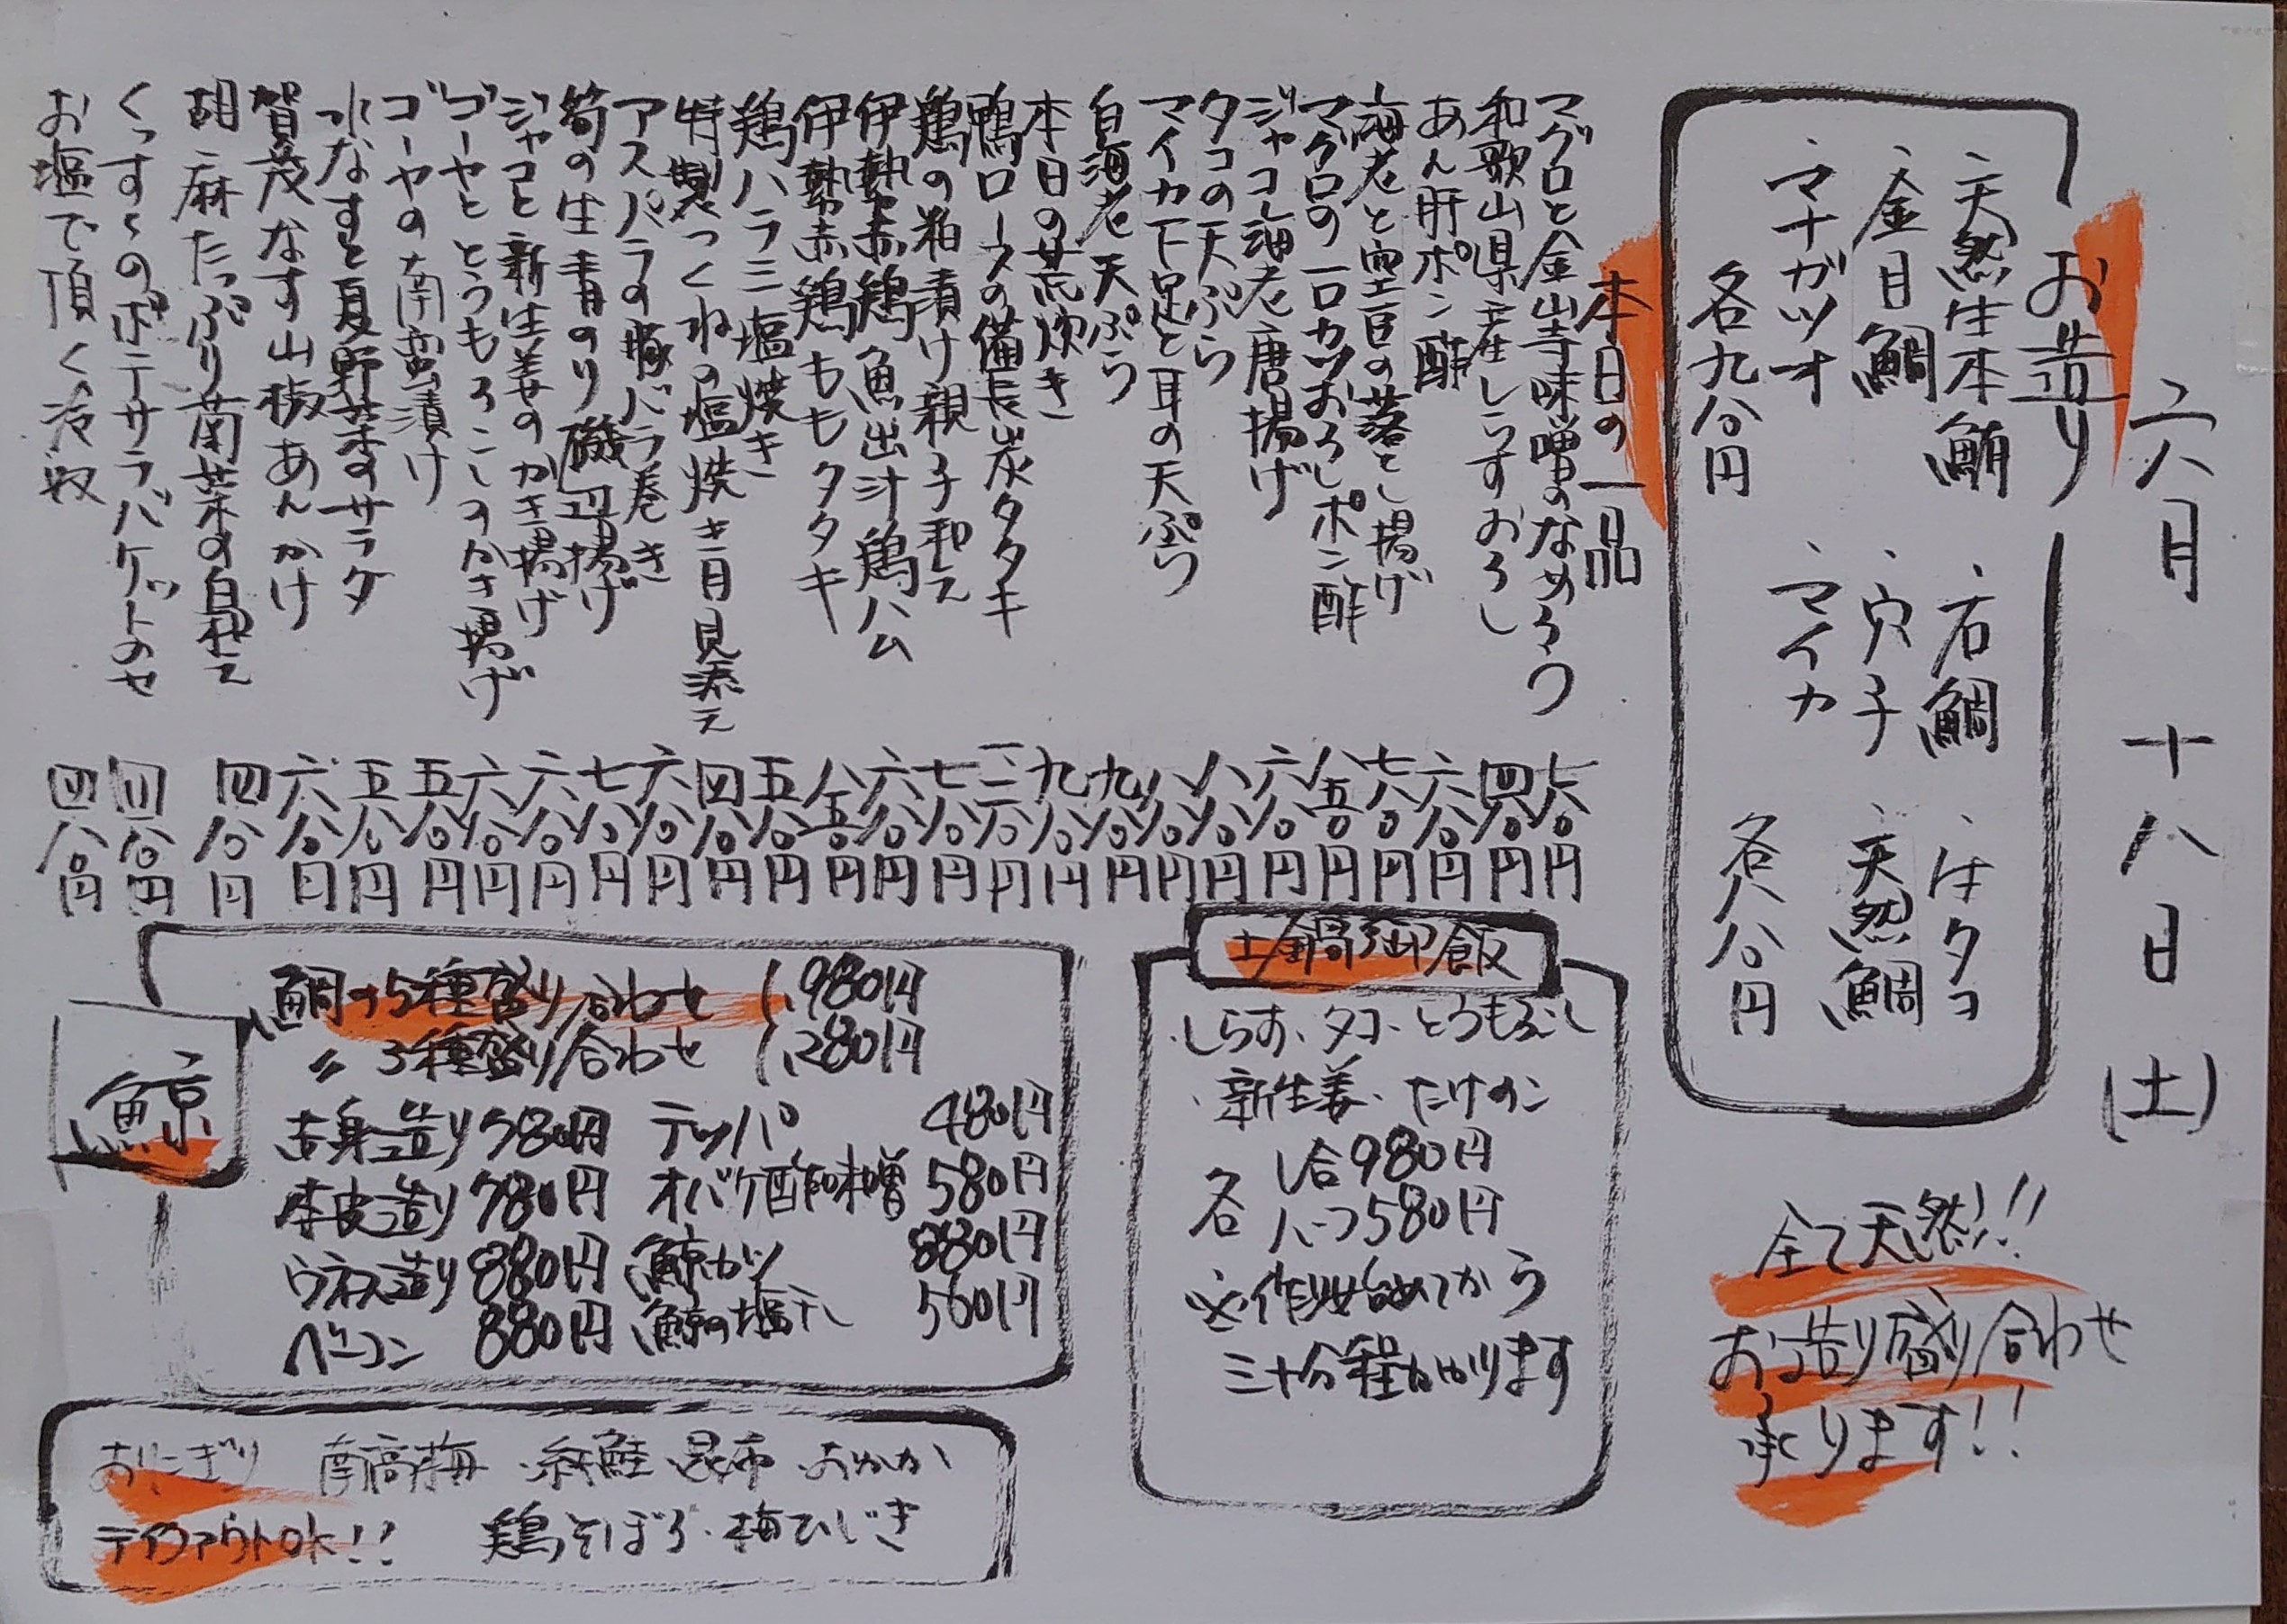 六月 十八日 (土)
お造り
・天然生本鮪 ・石鯛 ・生タコ
・金目鯛 ・穴子 ・天然鯛
・マナガツオ ・マイカ
各九八〇円 各八八〇円
全て天然!!
お造り盛り合わせ
承ります!!
本日の一品
マグロと金山寺味噌のなめろう 七八〇円
和歌山県産しらすおろし 四八〇円
あん肝ポン酢 六八〇円
海老と空豆の落とし揚げ 七八〇円
マグロの一口カツおろしポン酢 八五〇円
ジャコ海老唐揚げ 六八〇円
タコの天ぷら 八八〇円
マイカ下足と耳の天ぷら 八八〇円
白海老天ぷら 九八〇円
本日の荒炊き 九八〇円
鴨ロースの備長炭タタキ
鶏の粕漬け親子和え 七八〇円
伊勢赤鶏魚出汁鶏ハム 六八〇円
伊勢赤鶏ももタタキ
鶏ハラミ塩焼き 五八〇円
特製つくねの塩焼き 月見添え 四八〇円
アスパラの豚バラ巻き 六八〇円
筍の生青のり磯辺揚げ 七八〇円
ジャコと新生姜のかき揚げ 六八〇円
ゴーヤととうもろこしのかき揚げ 六八〇円
ゴーヤの南蛮漬け 五八〇円
水なすと夏野菜のサラダ 五八〇円
賀茂なす山椒あんかけ 六八〇円
胡麻たっぷり菊菜の白和え 四八〇円
くっすくのポテサラバケットのせ 四八〇円
お塩で頂く冷奴 四八〇円
土鍋御飯
・しらす・タコ・とうもろこし
・新生姜・たけのこ
各 一合980円
ハーフ580円
※作り始めてから
三十分程かかります
鯨
鯨の5種盛り合わせ 1,980円
〃 3種盛り合わせ 1,280円
赤身造り 780円 テッパ 480円
本皮造り 780円 オバケ酢味噌 580円
ウネス造り 880円 鯨カツ 880円
ベーコン 880円 鯨の塩干し 560円
おにぎり 南高梅・紅鮭・昆布・おかか
テイクアウトOK!! 鶏そぼろ・梅ひじき